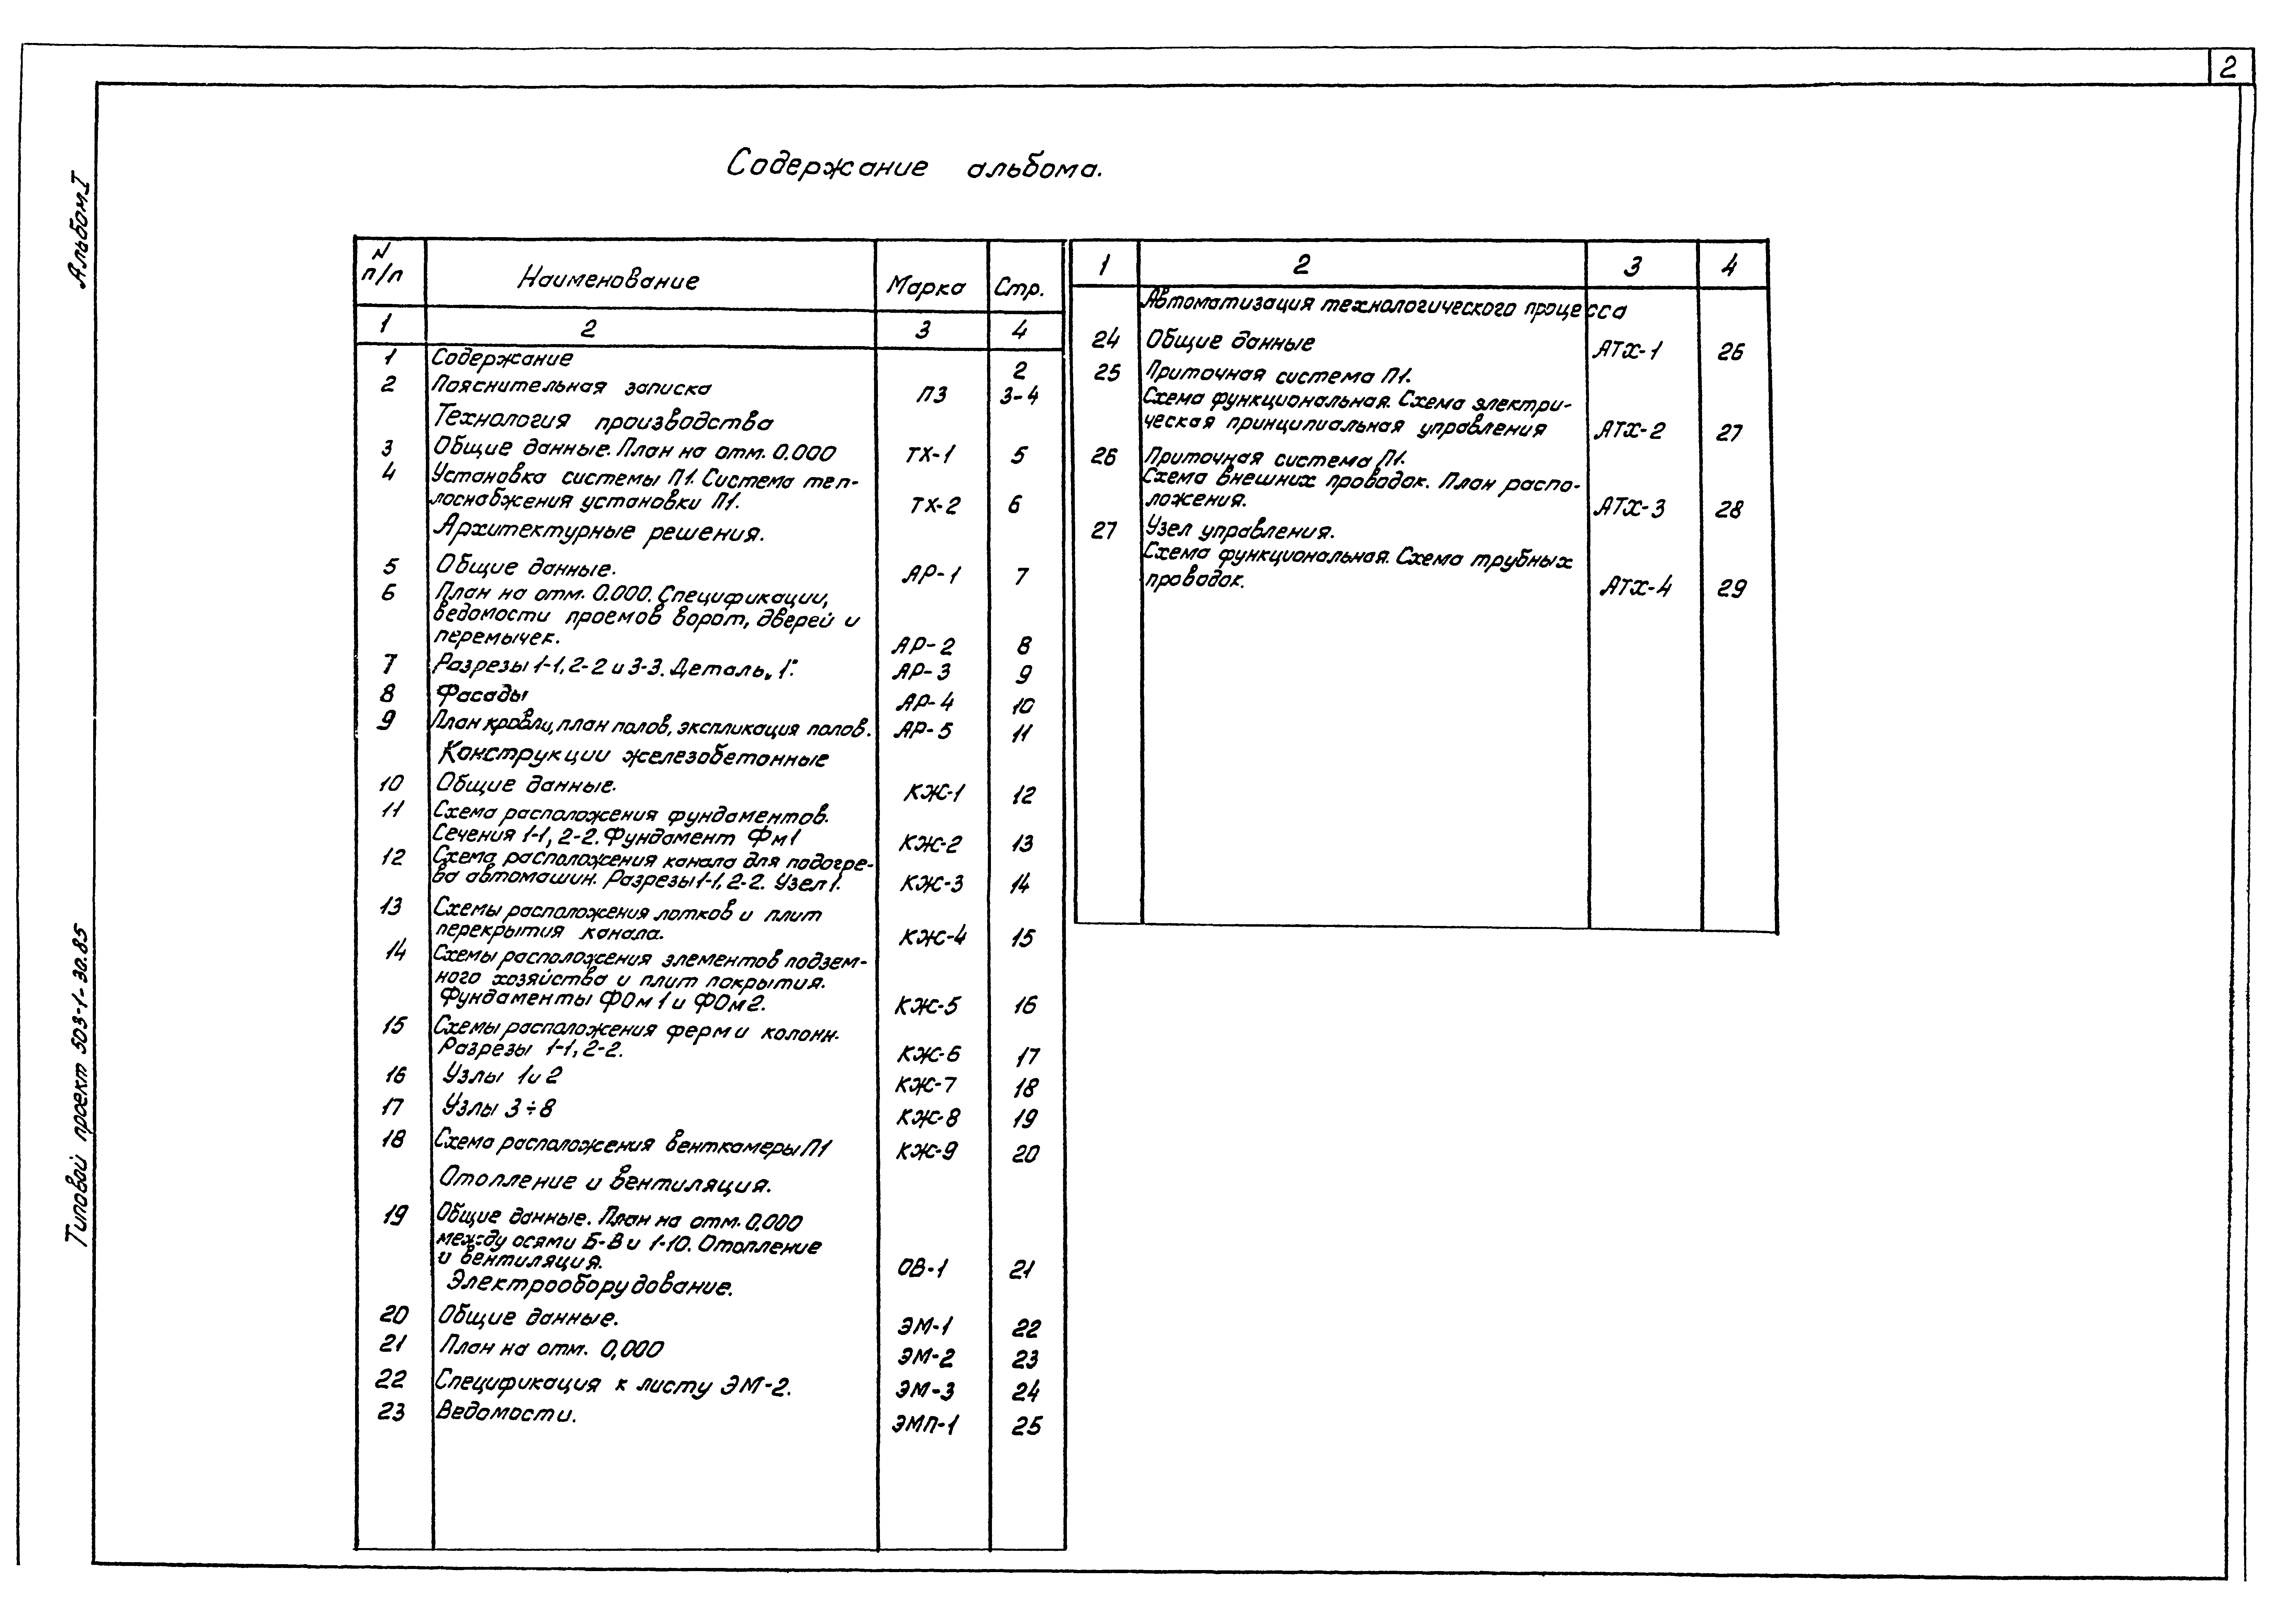 2
Альбом I
Типовой проект 503-1-30.85
Содержание альбома.
N п/п Наименование Марка Стр.
1 2 3 4
1 Содержание 2
2 Пояснительная записка ПЗ 3-4
Технология производства
3 Общие данные. План на отм. 0.000 ТХ-1 5
4 Установка системы П1. Система теп-
лоснабжения установки П1. ТХ-2 6
Архитектурные решения.
5 Общие данные. АР-1 7
6 План на отм. 0.000. Спецификации,
ведомости проемов ворот, дверей и
перемычек. АР-2 8
7 Разрезы 1-1, 2-2 и 3-3. Деталь „1". АР-3 9
8 Фасады АР-4 10
9 План кровли, план полов, экспликация полов. АР-5 11
Конструкции железобетонные
10 Общие данные. КЖ-1 12
11 Схема расположения фундаментов.
Сечения 1-1, 2-2. Фундамент Фм1 КЖ-2 13
12 Схема расположения канала для подогре-
ва автомашин. Разрезы 1-1, 2-2. Узел 1. КЖ-3 14
13 Схемы расположения лотков и плит
перекрытия канала. КЖ-4 15
14 Схемы расположения элементов подзем-
ного хозяйства и плит покрытия.
Фундаменты ФОм1 и ФОм2. КЖ-5 16
15 Схемы расположения ферм и колонн.
Разрезы 1-1, 2-2. КЖ-6 17
16 Узлы 1 и 2 КЖ-7 18
17 Узлы 3÷8 КЖ-8 19
18 Схема расположения венткамеры П1 КЖ-9 20
Отопление и вентиляция.
19 Общие данные. План на отм. 0,000
между осями Б-В и 1-10. Отопление
и вентиляция. ОВ-1 21
Электрооборудование.
20 Общие данные. ЭМ-1 22
21 План на отм. 0,000 ЭМ-2 23
22 Спецификация к листу ЭМ-2. ЭМ-3 24
23 Ведомости. ЭМП-1 25
1 2 3 4
Автоматизация технологического процесса
24 Общие данные АТХ-1 26
25 Приточная система П1.
Схема функциональная. Схема электри-
ческая принципиальная управления АТХ-2 27
26 Приточная система П1.
Схема внешних проводок. План распо-
ложения. АТХ-3 28
27 Узел управления.
Схема функциональная. Схема трубных
проводок. АТХ-4 29